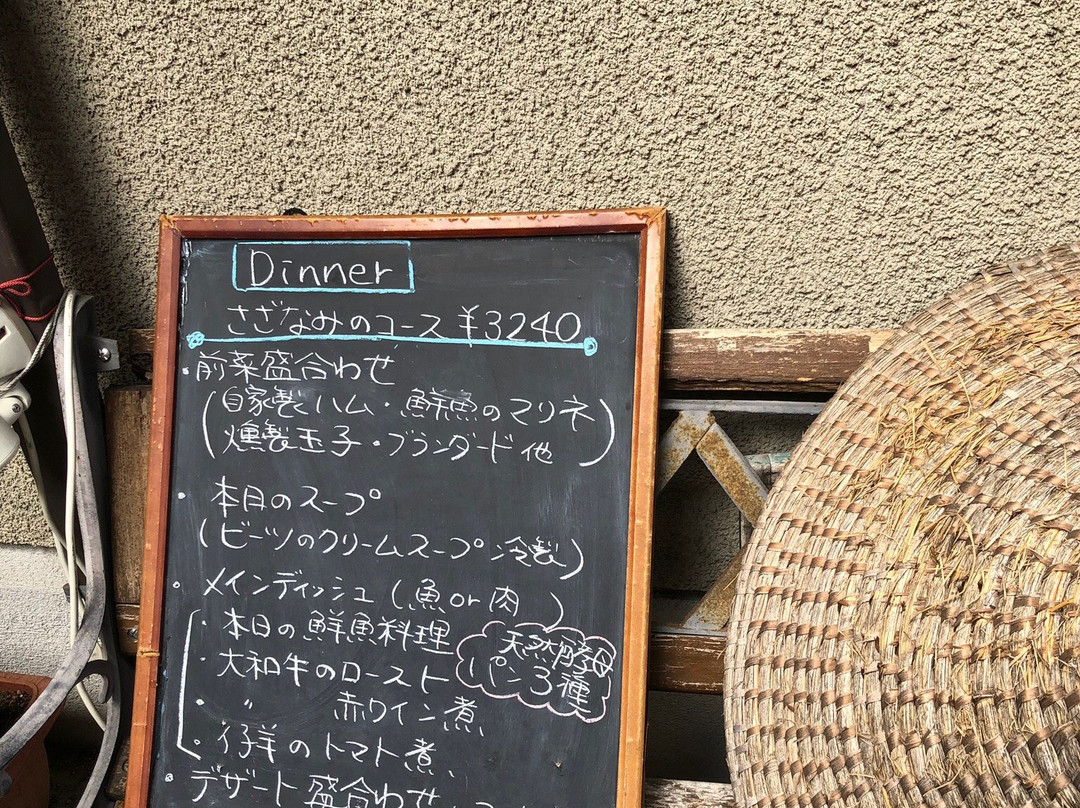 Dinner
さざなみのコース ¥3240
・前菜盛合わせ
(自家製ハム・鮮魚のマリネ
燻製玉子・ブランダード他)
・本日のスープ
(ビーツのクリームスープ 冷製)
・メインディッシュ(魚or肉)
・本日の鮮魚料理
・大和牛のロースト
・〃 赤ワイン煮
・仔羊のトマト煮
天然酵母
パン3種
・デザート盛合わせ